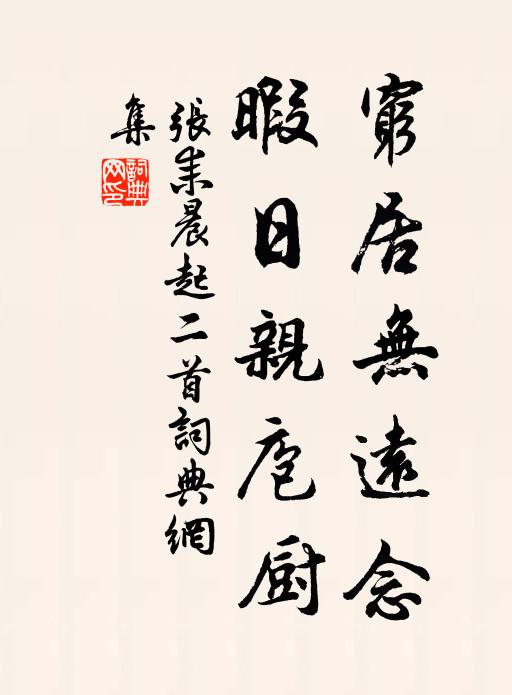 窮居無遠念
暇日親庖厨
張耒晨起二首詞典網
集
詞典
网印